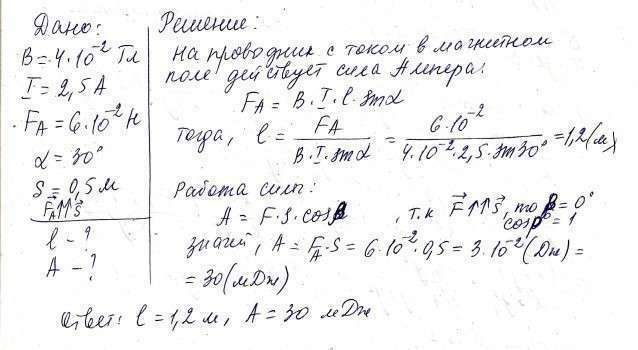 Дано:
B = 4·10⁻² Тл
I = 2,5 А
F_A = 6·10⁻² Н
α = 30°
S = 0,5 м
F⃗_A↑↑S⃗
l - ?
A - ?
Решение:
На проводник с током в магнитном
поле действует сила Ампера:
F_A = B·I·l·sinα
Тогда, l = F_A / (B·I·sinα) = 6·10⁻² / (4·10⁻²·2,5·sin30°) = 1,2 (м)
Работа силы:
A = F·S·cosβ, т.к F⃗↑↑S⃗, то β = 0°
cosβ = 1
значит, A = F_A·S = 6·10⁻²·0,5 = 3·10⁻² (Дж) =
= 30 (мДж)
Ответ: l = 1,2 м, A = 30 мДж